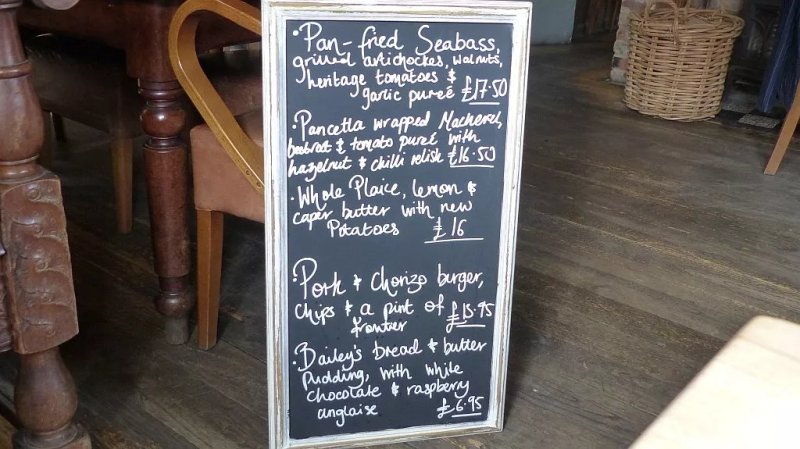 • Pan-fried Seabass,
grilled artichockes, walnuts,
heritage tomatoes &
garlic pureé £17.50
• Pancetta wrapped Mackerel,
beetroot & tomato pureé with
hazelnut & chilli relish £16.50
• Whole Plaice, lemon &
caper butter with new
Potatoes £16
• Pork & Chorizo burger,
chips & a pint of £15.95
frontier
• Bailey's bread & butter
Pudding, with white
chocolate & raspberry
anglaise £6.95